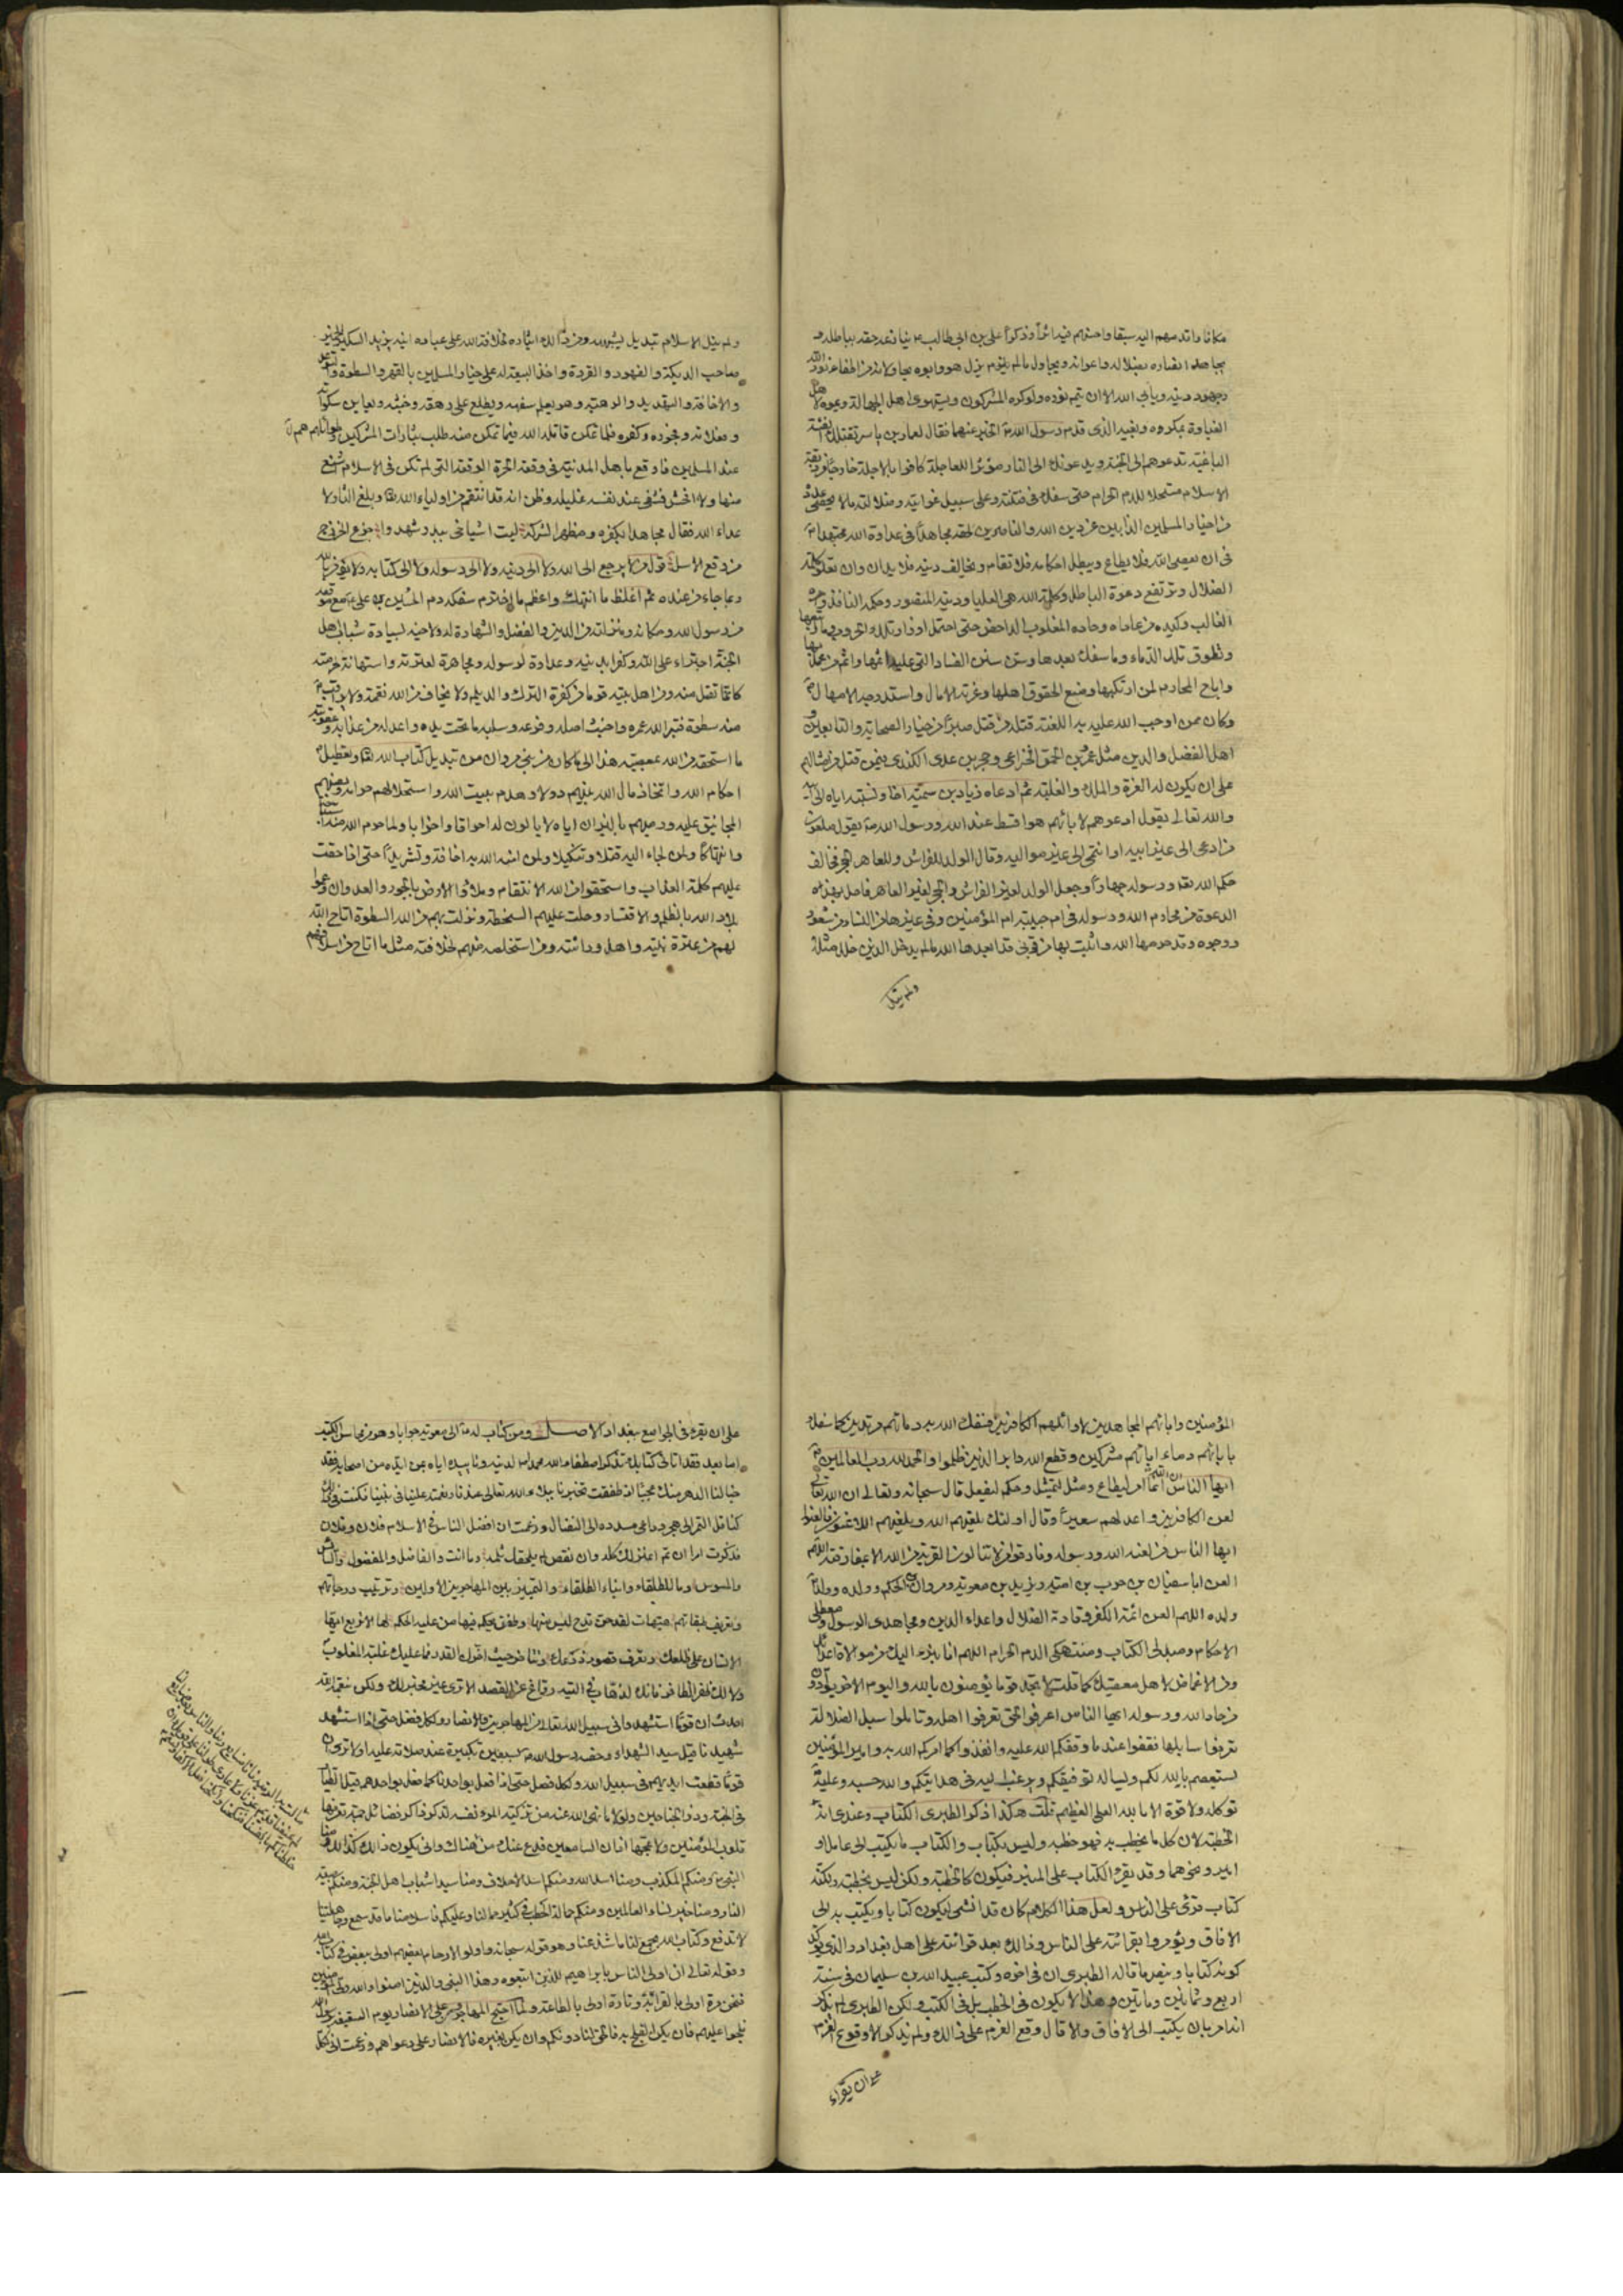 مكانا واقدمهم اليه سبقا واحسنهم فيه اثرا وذكرا على بن ابى طالب ع ينازعه حقه بباطله و
يجاهد انصاره بضلاله واعوانه ويحاول ما لم يزل هو وابوه يحاولانه من اطفاء نور الله
وجحود دينه ويأبى الله الا ان يتم نوره ولو كره المشركون ويستهوى اهل الجهالة ويموه لاهل
الغباوة بمكره وبغيه الذى قدم رسول الله ص الخبر عنهما فقال لعمار بن ياسر تقتلك الفئة
الباغية تدعوهم الى الجنة ويدعونك الى النار مؤثرا للعاجلة كافرا بالاجلة خارجا من ربقة
الاسلام مستحلا للدم الحرام حتى سفك فى فتنته وعلى سبيل غوايته وضلالته ما لا يحصى عدده
من اخيار المسلمين الذابين عن دين الله والناصرين لحقه مجاهدا فى عداوة الله مجتهدا
فى ان يعصى الله فلا يطاع ويبطل احكامه فلا تقام ويخالف دينه فلا يدان وان تعلو كلمة
الضلال وترتفع دعوة الباطل وكلمة الله هى العليا ودينه المنصور وحكمه النافذ وامره
الغالب وكيد من عاداه وحاده المغلوب الداحض حتى احتمل اوزار تلك الحروب وما تبعها
وتطوق تلك الدماء وما سفك بعدها وسن سنن الفساد التى عليه اثمها واثم من عمل بها
واباح المحارم لمن ارتكبها ومنع الحقوق اهلها وغرته الامال واستدرجه الامهال
وكان ممن اوجب الله عليه به اللعنة قتله من قتل صبرا من خيار الصحابة والتابعين و
اهل الفضل والدين مثل عمرو بن الحمق الخزاعى وحجر بن عدى الكندى فيمن قتل من امثالهم
على ان يكون له العزة والملك والغلبة ثم ادعاؤه زياد بن سمية اخا ونسبته اياه الى ابيه
والله تعالى يقول ادعوهم لابائهم هو اقسط عند الله ورسول الله ص يقول ملعون
من ادعى الى غير ابيه او انتمى الى غير مواليه وقال الولد للفراش وللعاهر الحجر فخالف
حكم الله تعالى ورسوله جهارا وجعل الولد لغير الفراش والحجر لغير العاهر فاحل بهذه
الدعوة من محارم الله ورسوله فى ام حبيبة ام المؤمنين وفى غيرها من النساء من شعور
ووجوه وقد حرمها الله واثبت بها من قربى قد ابعدها الله ما لم يدخل الدين خلل مثله
ولم ينل
ولم ينل الاسلام تبديل يشبهه ومن ذلك ايثاره لخلافة الله على عباده ابنه يزيد السكير الخمير
صاحب الديكة والفهود والقردة واخذ البيعة له على خيار المسلمين بالقهر والسطوة والتوعد
والاخافة والتهديد والرهبة وهو يعلم سفهه ويطلع على رهقه وخبثه ويعاين سكراته
وفعلاته وفجوره وكفره فلما تمكن قاتله الله فيما تمكن منه طلب بثارات المشركين وطوائلهم
عند المسلمين فاوقع باهل المدينة فى وقعة الحرة الوقعة التى لم تكن فى الاسلام اشنع
منها ولا افحش فشفى عند نفسه غليله وظن انه قد انتقم من اولياء الله وبلغ الثار لا
عداء الله فقال مجاهدا بكفره ومظهرا لشركه ليت اشياخى ببدر شهدوا جزع الخزرج
من وقع الاسل قول من لا يرجع الى الله ولا الى دينه ولا الى رسوله ولا الى كتابه ولا يؤمن بالله
وبما جاء من عنده ثم اغلظ ما انتهك واعظم ما اخترم سفكه دم الحسين بن على ع مع موقعه
من رسول الله ومكانه ومنزلته من الدين والفضل والشهادة له ولاخيه بسيادة شباب اهل
الجنة اجتراء على الله وكفرا بدينه وعداوة لرسوله ومجاهرة لعترته واستهانة لحرمته
كانما تقتل منه ومن اهل بيته قوما من كفرة الترك والديلم ولا يخاف من الله نقمة ولا يراقب
منه سطوة فبتر الله عمره واخبث اصله وفرعه وسلبه ما تحت يده واعد له من عذابه وعقوبته
ما استحقه من الله بمعصيته هذا الى ما كان من بنى مروان من تبديل كتاب الله تعالى وتعطيل
احكام الله واتخاذ مال الله بينهم دولا وهدم بيت الله واستحلالهم حرامه ونصبهم
المجانيق عليه ورميهم بالنيران اياه لا يالون له احراقا واخرابا ولما حرم الله منه استباحة
وانتهاكا ولمن لجاء اليه قتلا وتنكيلا ولمن امنه الله به اخافة وتشريدا حتى اذا حقت
عليهم كلمة العذاب واستحقوا من الله الانتقام وملاؤا الارض بالجور والعدوان وعموا
بلاد الله بالظلم والاقتسار وحلت عليهم السخطة ونزلت بهم من الله السطوة اتاح الله
لهم من عترة نبيه واهل وراثته ومن استخلصه منهم لخلافته مثل ما اتاح من اسلافهم
المؤمنين واباءهم المجاهدين لاوائلهم الكافرين فسفك الله به دماءهم مرتدين كما سفك
بابائهم دماء ابائهم مشركين وقطع الله دابر الذين ظلموا والحمد لله رب العالمين
ايها الناس ان الله انما امر ليطاع ومثل ليتمثل وحكم ليفعل قال سبحانه وتعالى ان الله تعالى
لعن الكافرين واعد لهم سعيرا وقال اولئك يلعنهم الله ويلعنهم اللاعنون فالعنوا
ايها الناس من لعنه الله ورسوله وفارقوا من لا تنالون القربة من الله الا بمفارقته اللهم
العن ابا سفيان بن حرب بن امية ويزيد بن معوية ومروان بن الحكم وولده وولد
ولده اللهم العن ائمة الكفر وقادة الضلال واعداء الدين ومجاهدى الرسول ومعطلى
الاحكام ومبدلى الكتاب ومنتهكى الدم الحرام اللهم انا نبرء اليك من موالاة اعدائك
ومن الاغماض لاهل معصيتك كما قلت لا تجد قوما يؤمنون بالله واليوم الاخر يوادون
من حاد الله ورسوله ايها الناس اعرفوا الحق تعرفوا اهله وتاملوا سبل الضلالة
تعرفوا سابلها فقفوا عند ما وقفكم الله عليه وانفذوا كما امركم الله به وامير المؤمنين
يستعصم بالله لكم ويساله توفيقكم ويرغب اليه فى هدايتكم والله حسبه وعليه
توكله ولا قوة الا بالله العلى العظيم قلت هكذا ذكر الطبرى الكتاب وعندى انه
الخطبة لان كل ما يخطب به فهو خطبه وليس بكتاب والكتاب ما يكتب الى عامل او
امير ونحوهما وقد يقرء الكتاب على المنبر فيكون كالخطبة ولكن ليس بخطبة ولكنه
كتاب قرئ على الناس ولعل هذا الكلام كان قد انشئ ليكون كتابا ويكتب به الى
الافاق ويؤمروا بقرائته على الناس وذلك بعد قرائته على اهل بغداد والذى يؤكد
كونه كتابا وينصر ما قاله الطبرى ان فى اخره وكتب عبيد الله بن سليمان فى سنة
اربع وثمانين وماتين وهذا لا يكون فى الخطب بل فى الكتب ولكن الطبرى لم يذكر
انه امر بان يكتب الى الافاق ولا قال وقع العزم على ذلك ولم يذكر الا وقوع العزم
على ان يقراء
على ان يقرء فى الجوامع ببغداد الاصل ومن كتاب له ع الى معوية جوابا وهو من محاسن الكتب
اما بعد فقد اتانى كتابك تذكر اصطفاء الله محمدا ص لدينه وتاييده اياه بمن ايده من اصحابه فقد
خبا لنا الدهر منك عجبا اذ طفقت تخبرنا ببلاء الله تعالى عندنا ونعمته علينا فى نبينا فكنت فى ذلك
كناقل التمر الى هجر وداعى مسدده الى النضال وزعمت ان افضل الناس فى الاسلام فلان وفلان
فذكرت امرا ان تم اعتزلك كله وان نقص لم يلحقك ثلمه وما انت والفاضل والمفضول والسائس
والمسوس وما للطلقاء وابناء الطلقاء والتمييز بين المهاجرين الاولين وترتيب درجاتهم
وتعريف طبقاتهم هيهات لقد حن قدح ليس منها وطفق يحكم فيها من عليه الحكم لها الا تربع ايها
الانسان على ظلعك وتعرف قصور ذرعك وتتاخر حيث اخرك القدر فما عليك غلبة المغلوب
ولا لك ظفر الظافر فانك لذهاب فى التيه رواغ عن القصد الا ترى غير مخبر لك ولكن بنعمة الله
احدث ان قوما استشهدوا فى سبيل الله تعالى من المهاجرين والانصار ولكل فضل حتى اذا استشهد
شهيدنا قيل سيد الشهداء وخصه رسول الله ص بسبعين تكبيرة عند صلاته عليه اولا ترى ان
قوما قطعت ايديهم فى سبيل الله ولكل فضل حتى اذا فعل بواحدنا كما فعل بواحدهم قيل الطيار
فى الجنة وذو الجناحين ولولا ما نهى الله عنه من تزكية المرء نفسه لذكر ذاكر فضائل جمة تعرفها
قلوب المؤمنين ولا تمجها اذان السامعين فدع عنك من مالت به الرمية فانا صنائع ربنا
النبى ص ومنكم المكذب ومنا اسد الله ومنكم اسد الاحلاف ومنا سيدا شباب اهل الجنة ومنكم صبية
النار ومنا خير نساء العالمين ومنكم حمالة الحطب فى كثير مما لنا وعليكم فاسلامنا ما قد سمع وجاهليتنا
لا تدفع وكتاب الله يجمع لنا ما شذ عنا وهو قوله سبحانه واولو الارحام بعضهم اولى ببعض فى كتاب الله
وقوله تعالى ان اولى الناس بابراهيم للذين اتبعوه وهذا النبى والذين امنوا والله ولى المؤمنين
فنحن مرة اولى بالقرابة وتارة اولى بالطاعة ولما احتج المهاجرون على الانصار يوم السقيفة برسول الله
فلجوا عليهم فان يكن الفلج به فالحق لنا دونكم وان يكن بغيره فالانصار على دعواهم وزعمت انى لكل